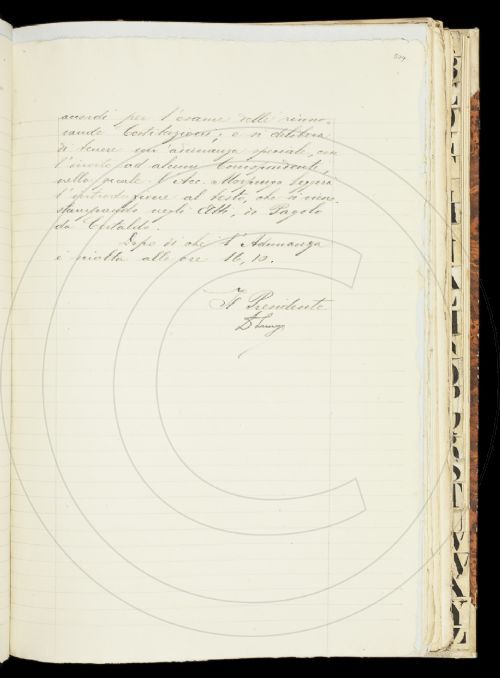 accordi per l'esame delle rinno-
vande Costituzioni; e si delibera
di tenere un'adunanza speciale, con
l'invito ad alcuni Corrispondenti,
nella quale l'Acc. leggerà
l'introduzione al testo, che si va
stampando negli Atti, di Paolo
da Certaldo.
Dopo di che l'Adunanza
è sciolta alle ore 16,10.
Il Presidente